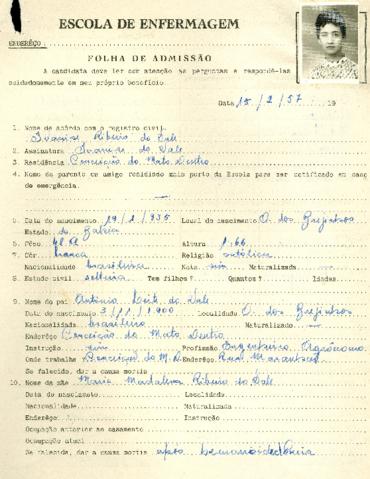 ESCOLA DE ENFERMAGEM
ENDERÊÇO
FOLHA DE ADMISSÃO
A candidata deve ler com atenção as perguntas e respondê-las
cuidadosamente em seu próprio benefício.
Data 15/2/57 19
1. Nome de acôrdo com o registro civil.
Ribeiro do Vale
2. Assinatura do Vale
3. Residência Conceição do Mato Dentro
4. Nome do parente ou amigo residindo mais perto da Escola para ser notificado em caso
de emergência.
5. Data do nascimento 19/1/935 Local do nascimento O. dos Brejinhos
Estado da Bahia
6. Pêso Altura 1.66
7. Côr branca Religião católica
Nacionalidade brasileira Nata sim Naturalizada
8. Estado civil solteira Tem filhos? Quantos? Idades.
9. Nome do pai Antônio Leite do Vale
Data do nascimento 3/11/1900 Localidade O. dos Brejinhos
Nacionalidade brasileiro Naturalizado
Enderêço Conceição do Mato Dentro
Instrução Profissão Engenheiro Agrônomo
Onde trabalha Conceição do M. D. Enderêço Rua
Se falecido, dar a causa mortis
10. Nome da mãe Maria Madalena Ribeiro do Vale
Data do nascimento Localidade
Nacionalidade Naturalizada
Enderêço Instrução
Ocupação anterior ao casamento
Ocupação atual
Se falecida, dar a causa mortis após